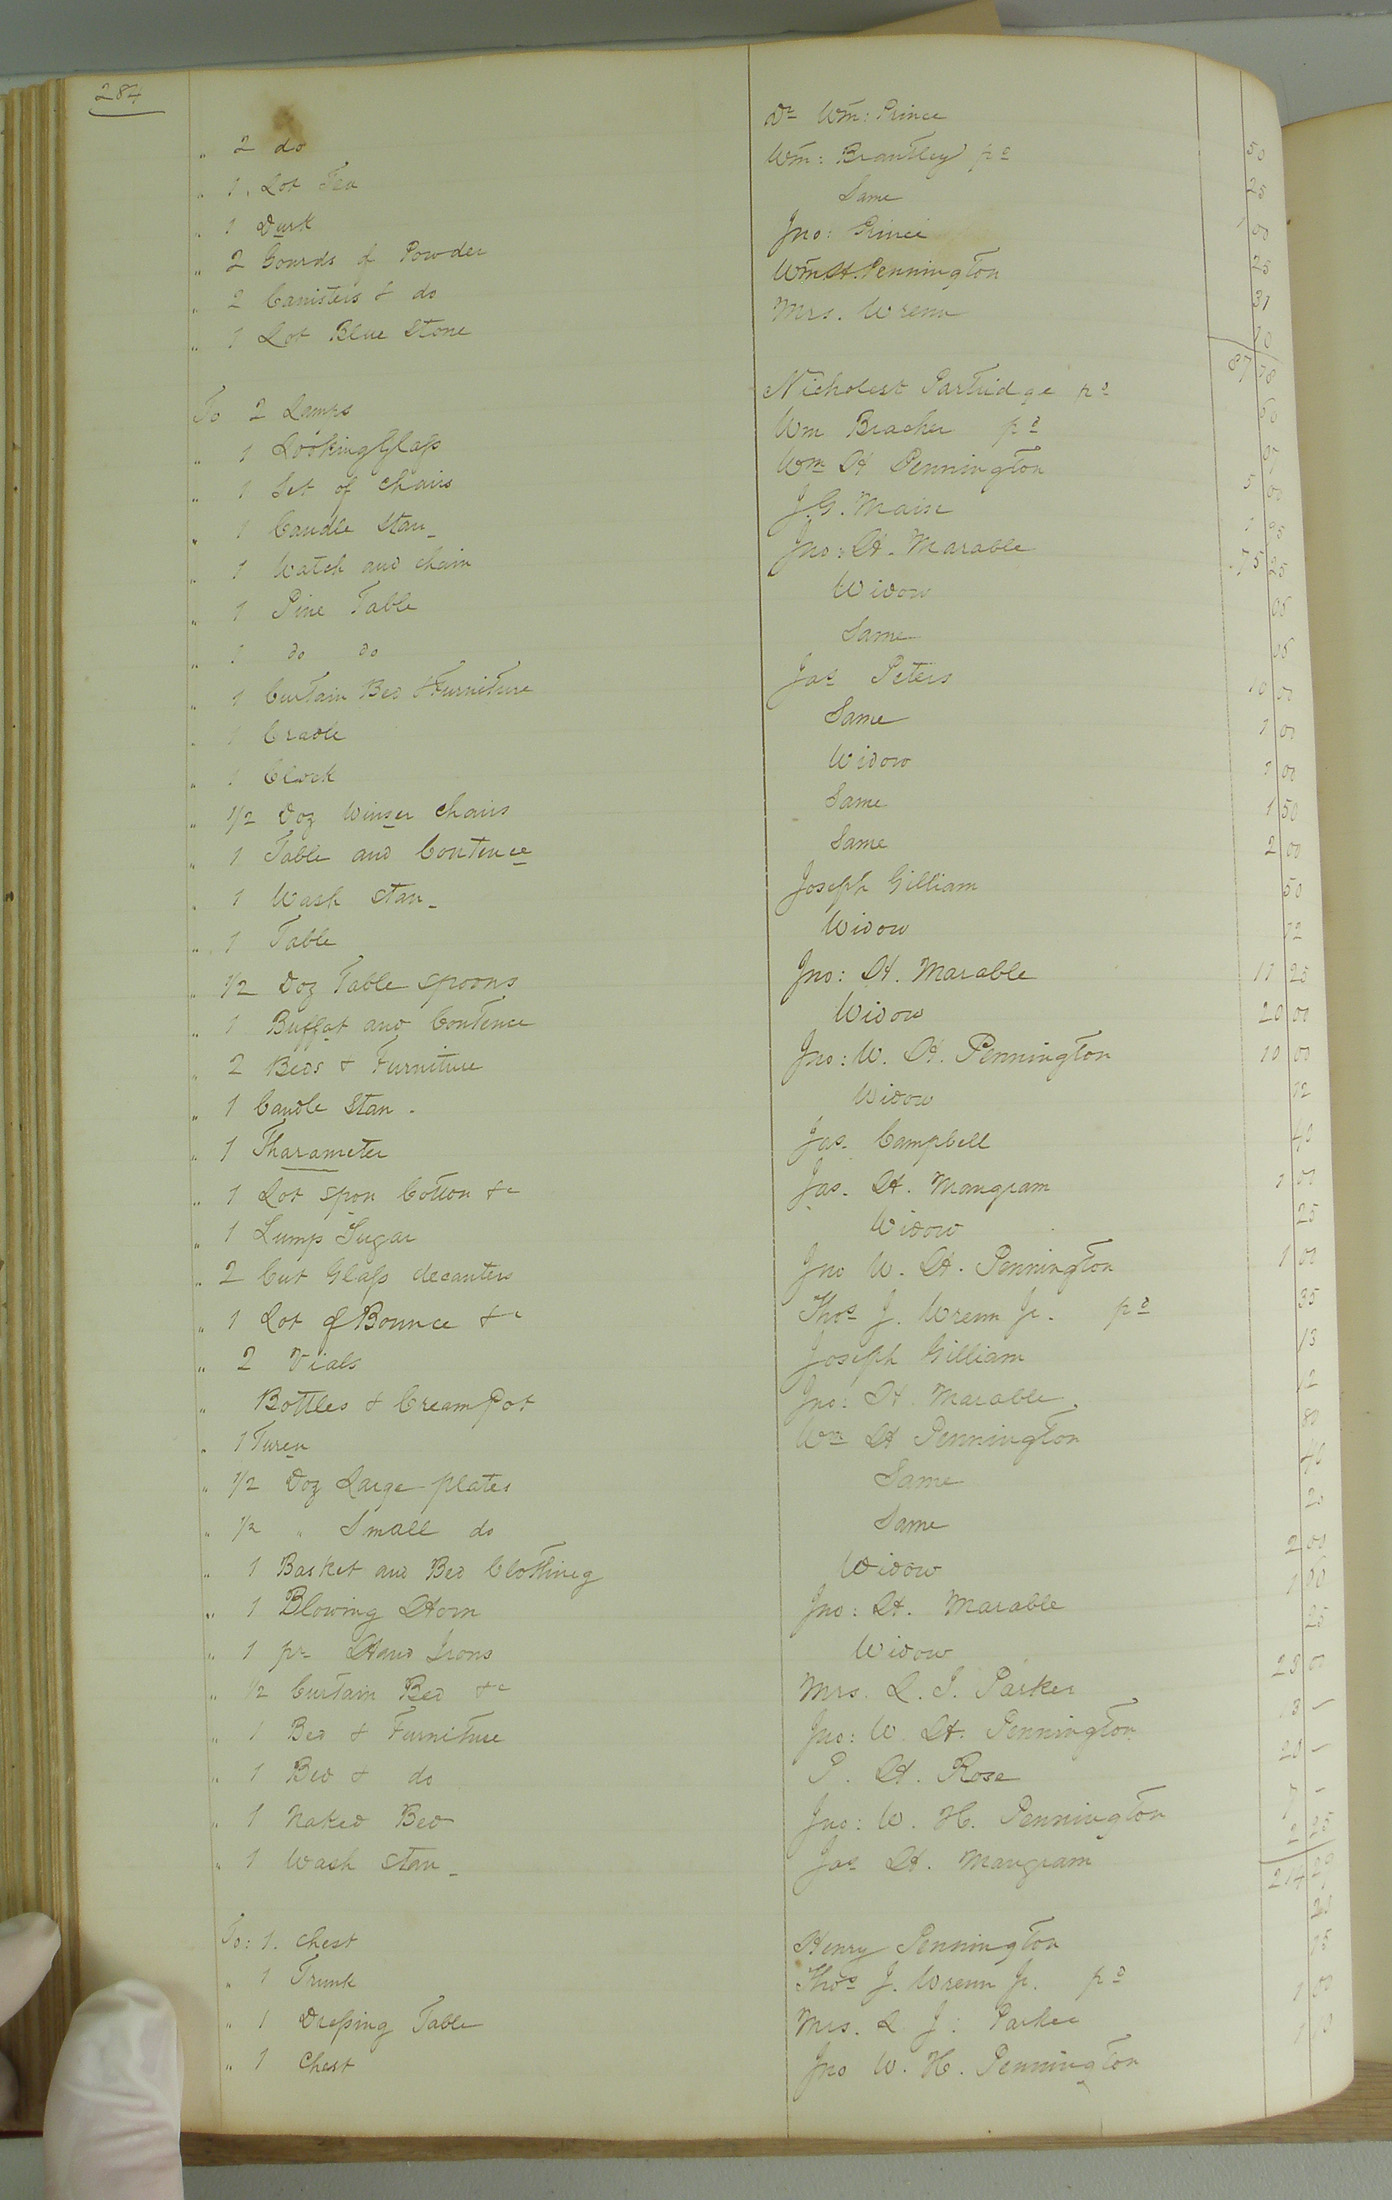 284
" 2 do Dr Wm: Prince 50
" 1. Lot Tea Wm: Brantley pd 25
" 1 Durk Same 1 00
" 2 Gourds of Powder Jno: Prince 25
" 2 Canisters & do Wm H. Pennington 31
" 1 Lot Blue Stone Mrs. Wrenn 10
87 78
To 2 Lamps Nicholest Partridge pd 50
" 1 Looking Glass Wm Bracher pd
" 1 Set of Chairs Wm H Pennington 5 00
" 1 Candle Stan_ J. G. Maise 1 25
" 1 Watch and chain Jno: H. Marable 75 25
" 1 Pine Table Widow 05
" 1 do do Same 05
" 1 Curtain Bed & Furniture Jas Peters 10 00
" 1 Cradle Same 1 00
" 1 Clock Widow 1 00
" 1/2 Doz Winser Chairs Same 1 50
" 1 Table and Contence Same 2 00
" 1 Wash Stan_ Joseph Gilliam 50
" 1 Table Widow 12
" 1/2 Doz Table Spoons Jno: H. Marable 11 25
" 1 Buffat and Contence Widow 20 00
" 2 Beds & Furniture Jno: W. H. Pennington 10 00
" 1 Candle Stan. Widow 12
" 1 Tharameter Jas. Campbell 40
" 1 Lot Spon Cotton &c Jas. H. Mangram 1 00
" 1 Lump Sugar Widow 25
" 2 Cut Glass decanters Jno W. H. Pennington 1 00
" 1 Lot of Bounce &c Thos J. Wrenn Jr. pd 35
" 2 Vials Joseph Gilliam 13
" Bottles & Cream Pot Jno: H. Marable. 12
" 1 Turen Wm H Pennington 80
" 1/2 Doz Large plates Same 40
" 1/2 " Small do Same 20
" 1 Basket and Bed Clothinig Widow 2 00
" 1 Blowing Horn Jno: H. Marable 1 00
" 1 pr Hand Irons Widow 25
" 1/2 Curtain Bed &c Mrs. L. J. Parker 25 00
" 1 Bed & Furniture Jno: W. H. Pennington 13 –
" 1 Bed & do P. H. Rose 20 –
" 1 Naked Bed Jno: W. H. Pennington 7 –
" 1 Wash Stan_ Jas H. Mangram 2 25
214 20
To: 1. Chest Henry Pennington 20
" 1 Trunk Thos J. Wrenn Jr. pd 05
" 1 Dressing Table Mrs. L J: Parker 1 00
" 1 Chest Jno W. H. Pennington 1